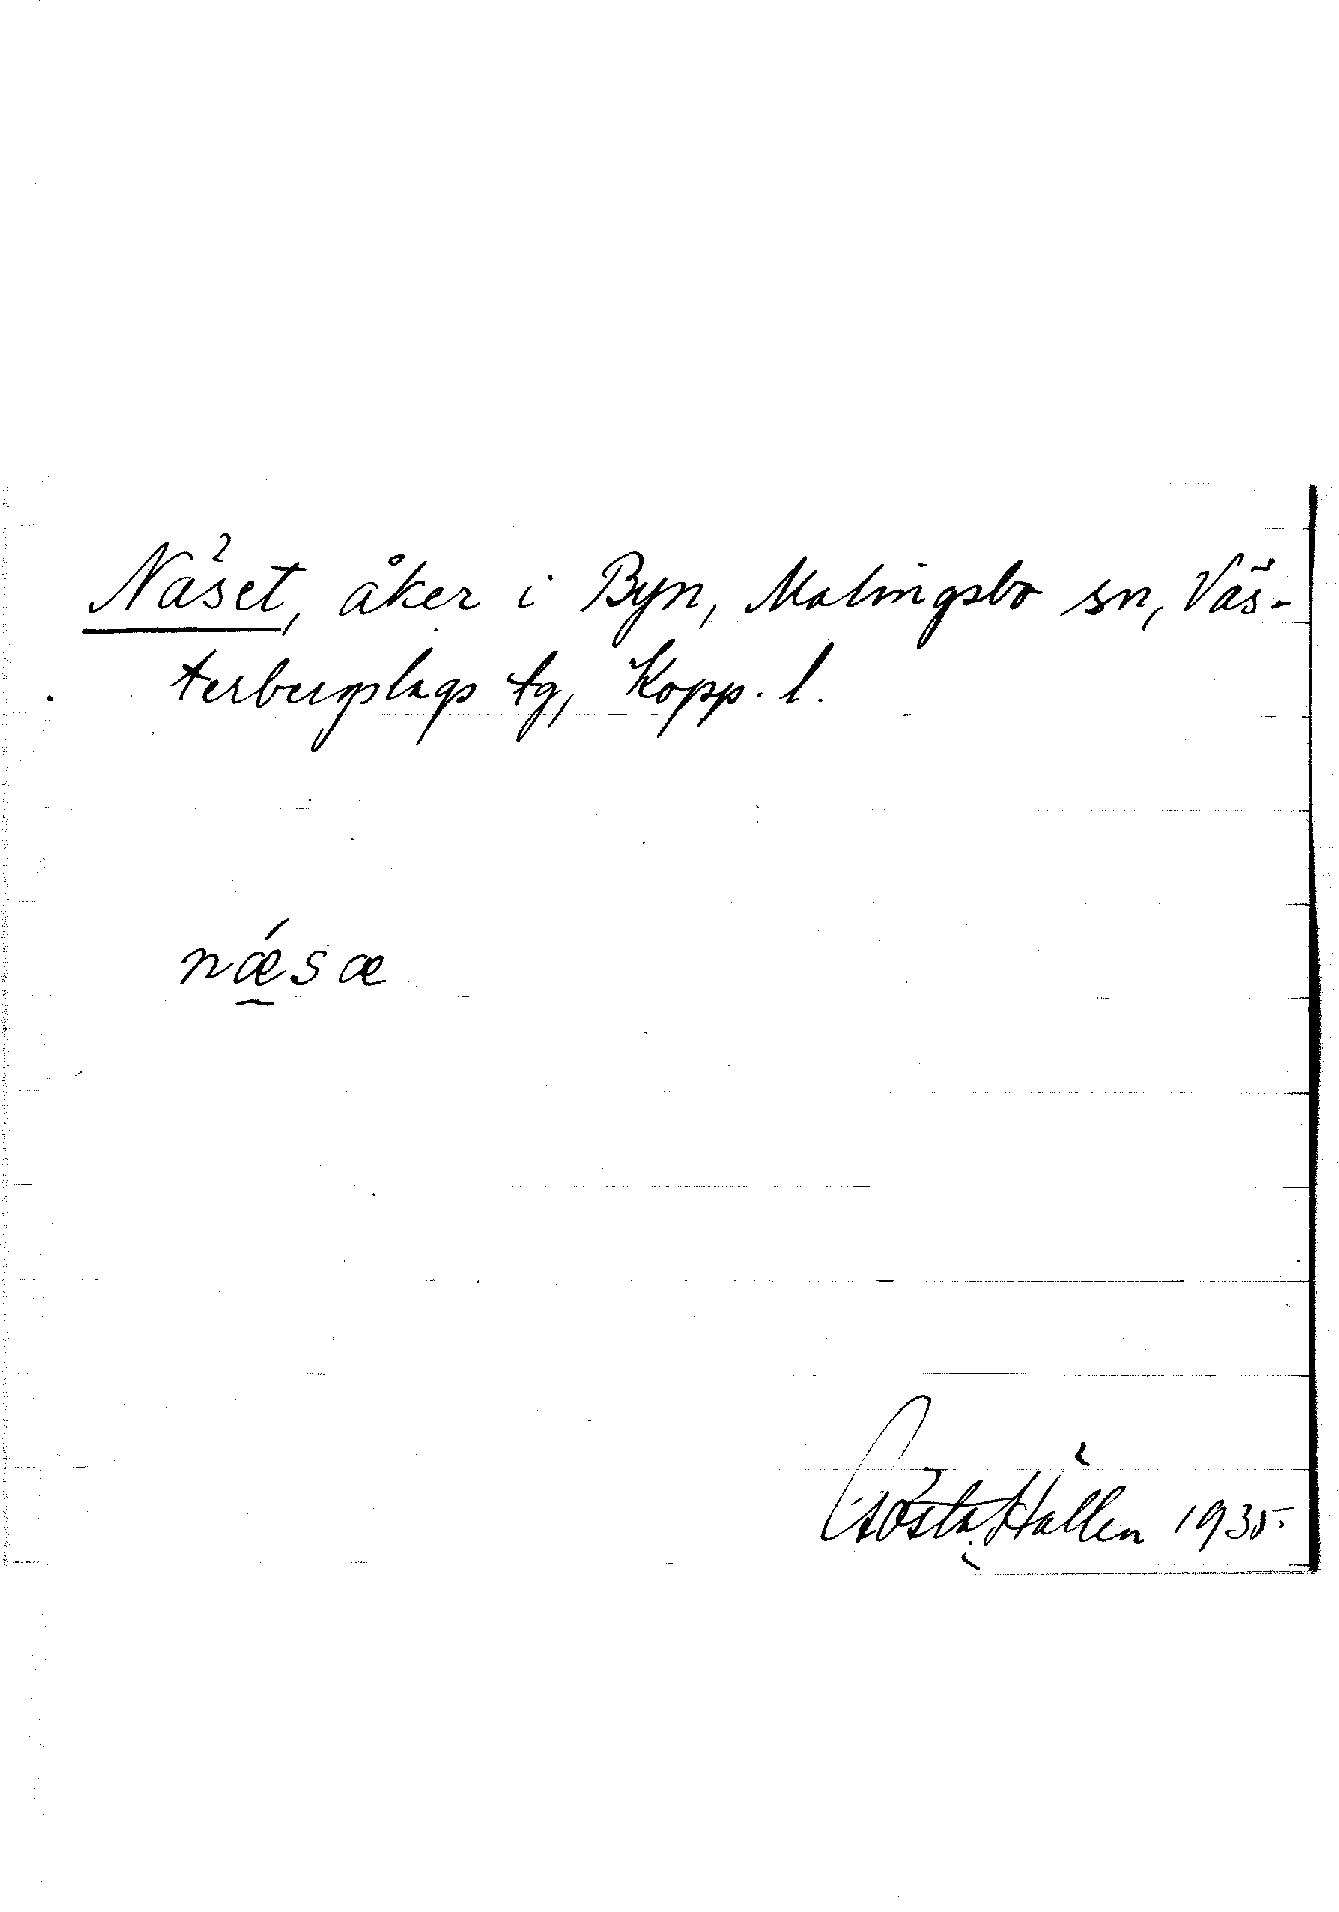 Näset, åker i Byn, Malingsbo sn, Väs-
terbergslags tg, Kopp. l.
nǽ̱sæ
Gösta Hallén 1935.